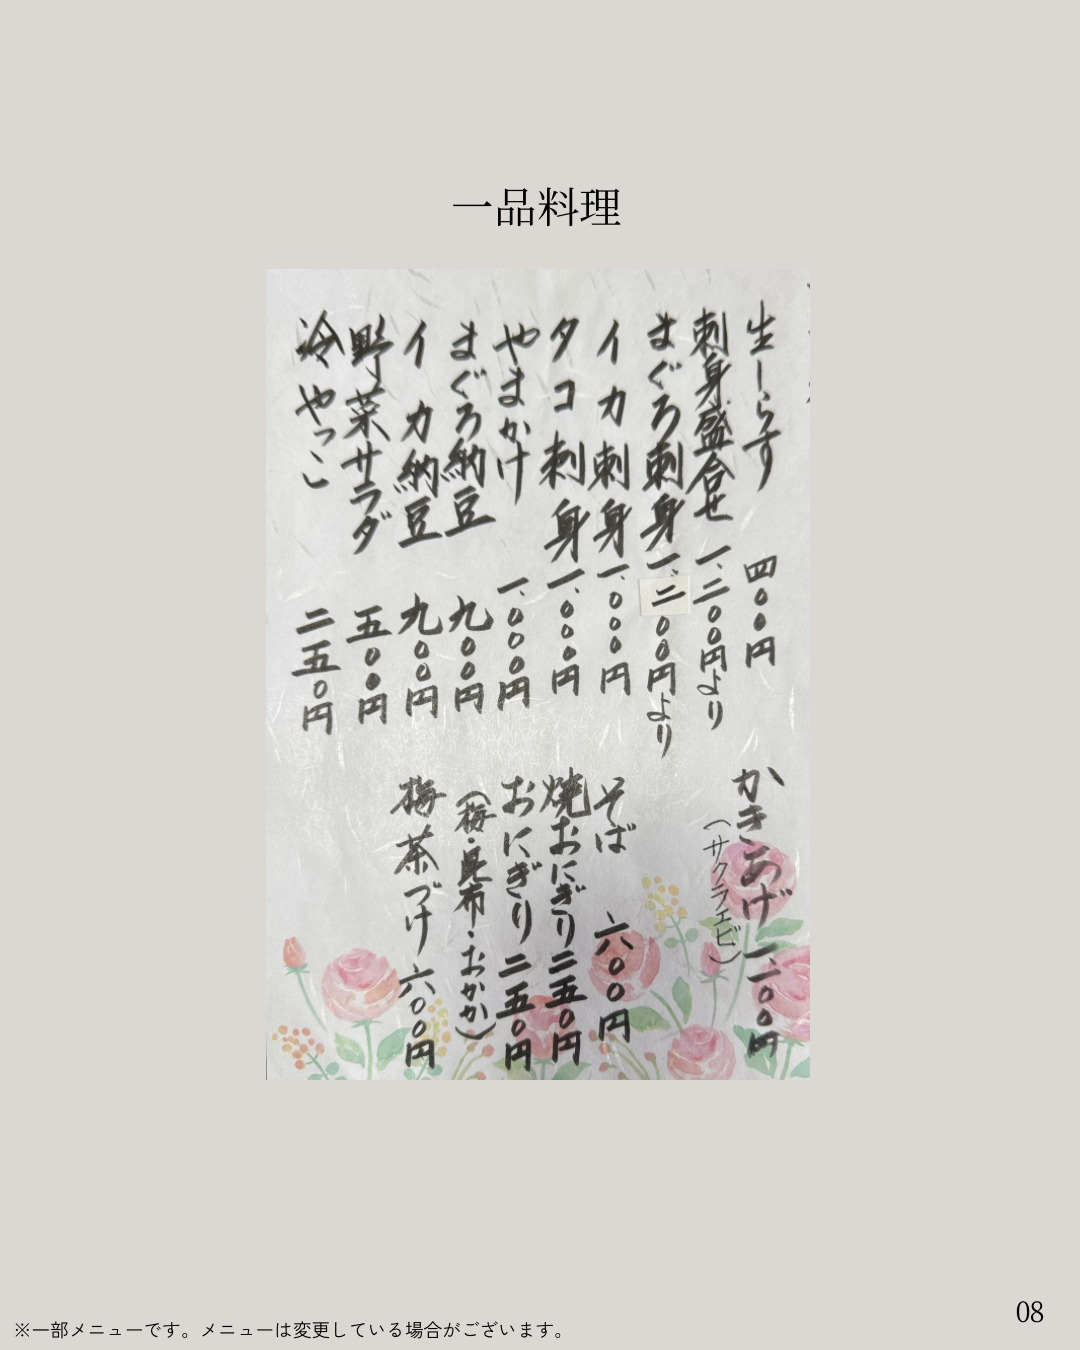 一品料理
生しらす 四〇〇円
刺身盛合せ 一、二〇〇円より
まぐろ刺身 一、二〇〇円より
イカ刺身 一、〇〇〇円
タコ刺身 一、〇〇〇円
やまかけ 一、〇〇〇円
まぐろ納豆 九〇〇円
イカ納豆 九〇〇円
野菜サラダ 五〇〇円
冷やっこ 二五〇円
かきあげ 一、二〇〇円
(サクラエビ)
そば 六〇〇円
焼おにぎり 二五〇円
おにぎり 二五〇円
(梅・昆布・おかか)
梅茶づけ 六〇〇円
※一部メニューです。メニューは変更している場合がございます。
08